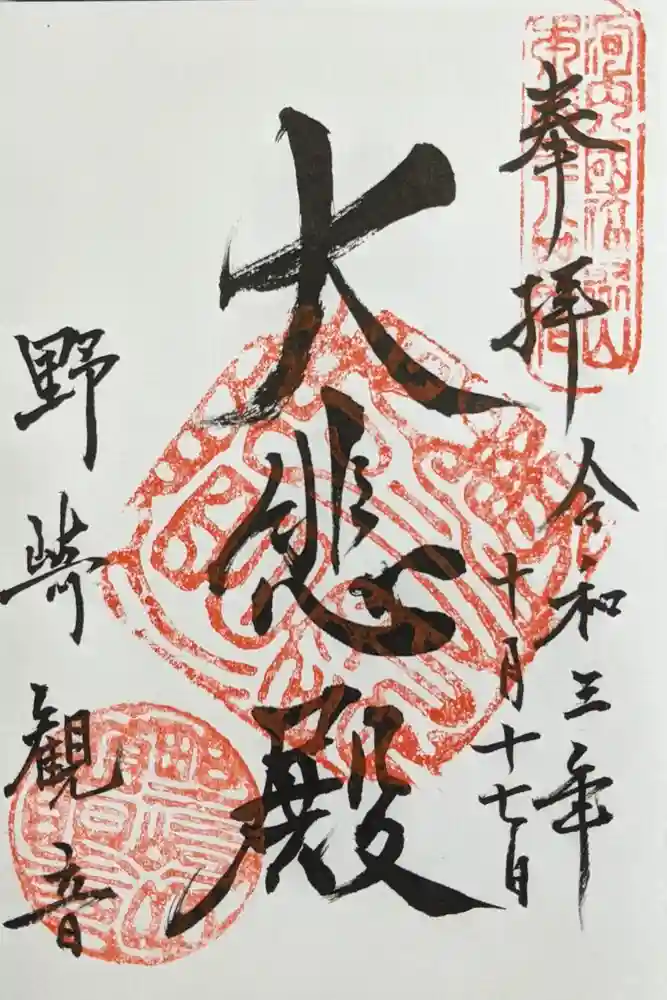 奉拝
令和三年
十月十七日
大悲殿
野崎観音